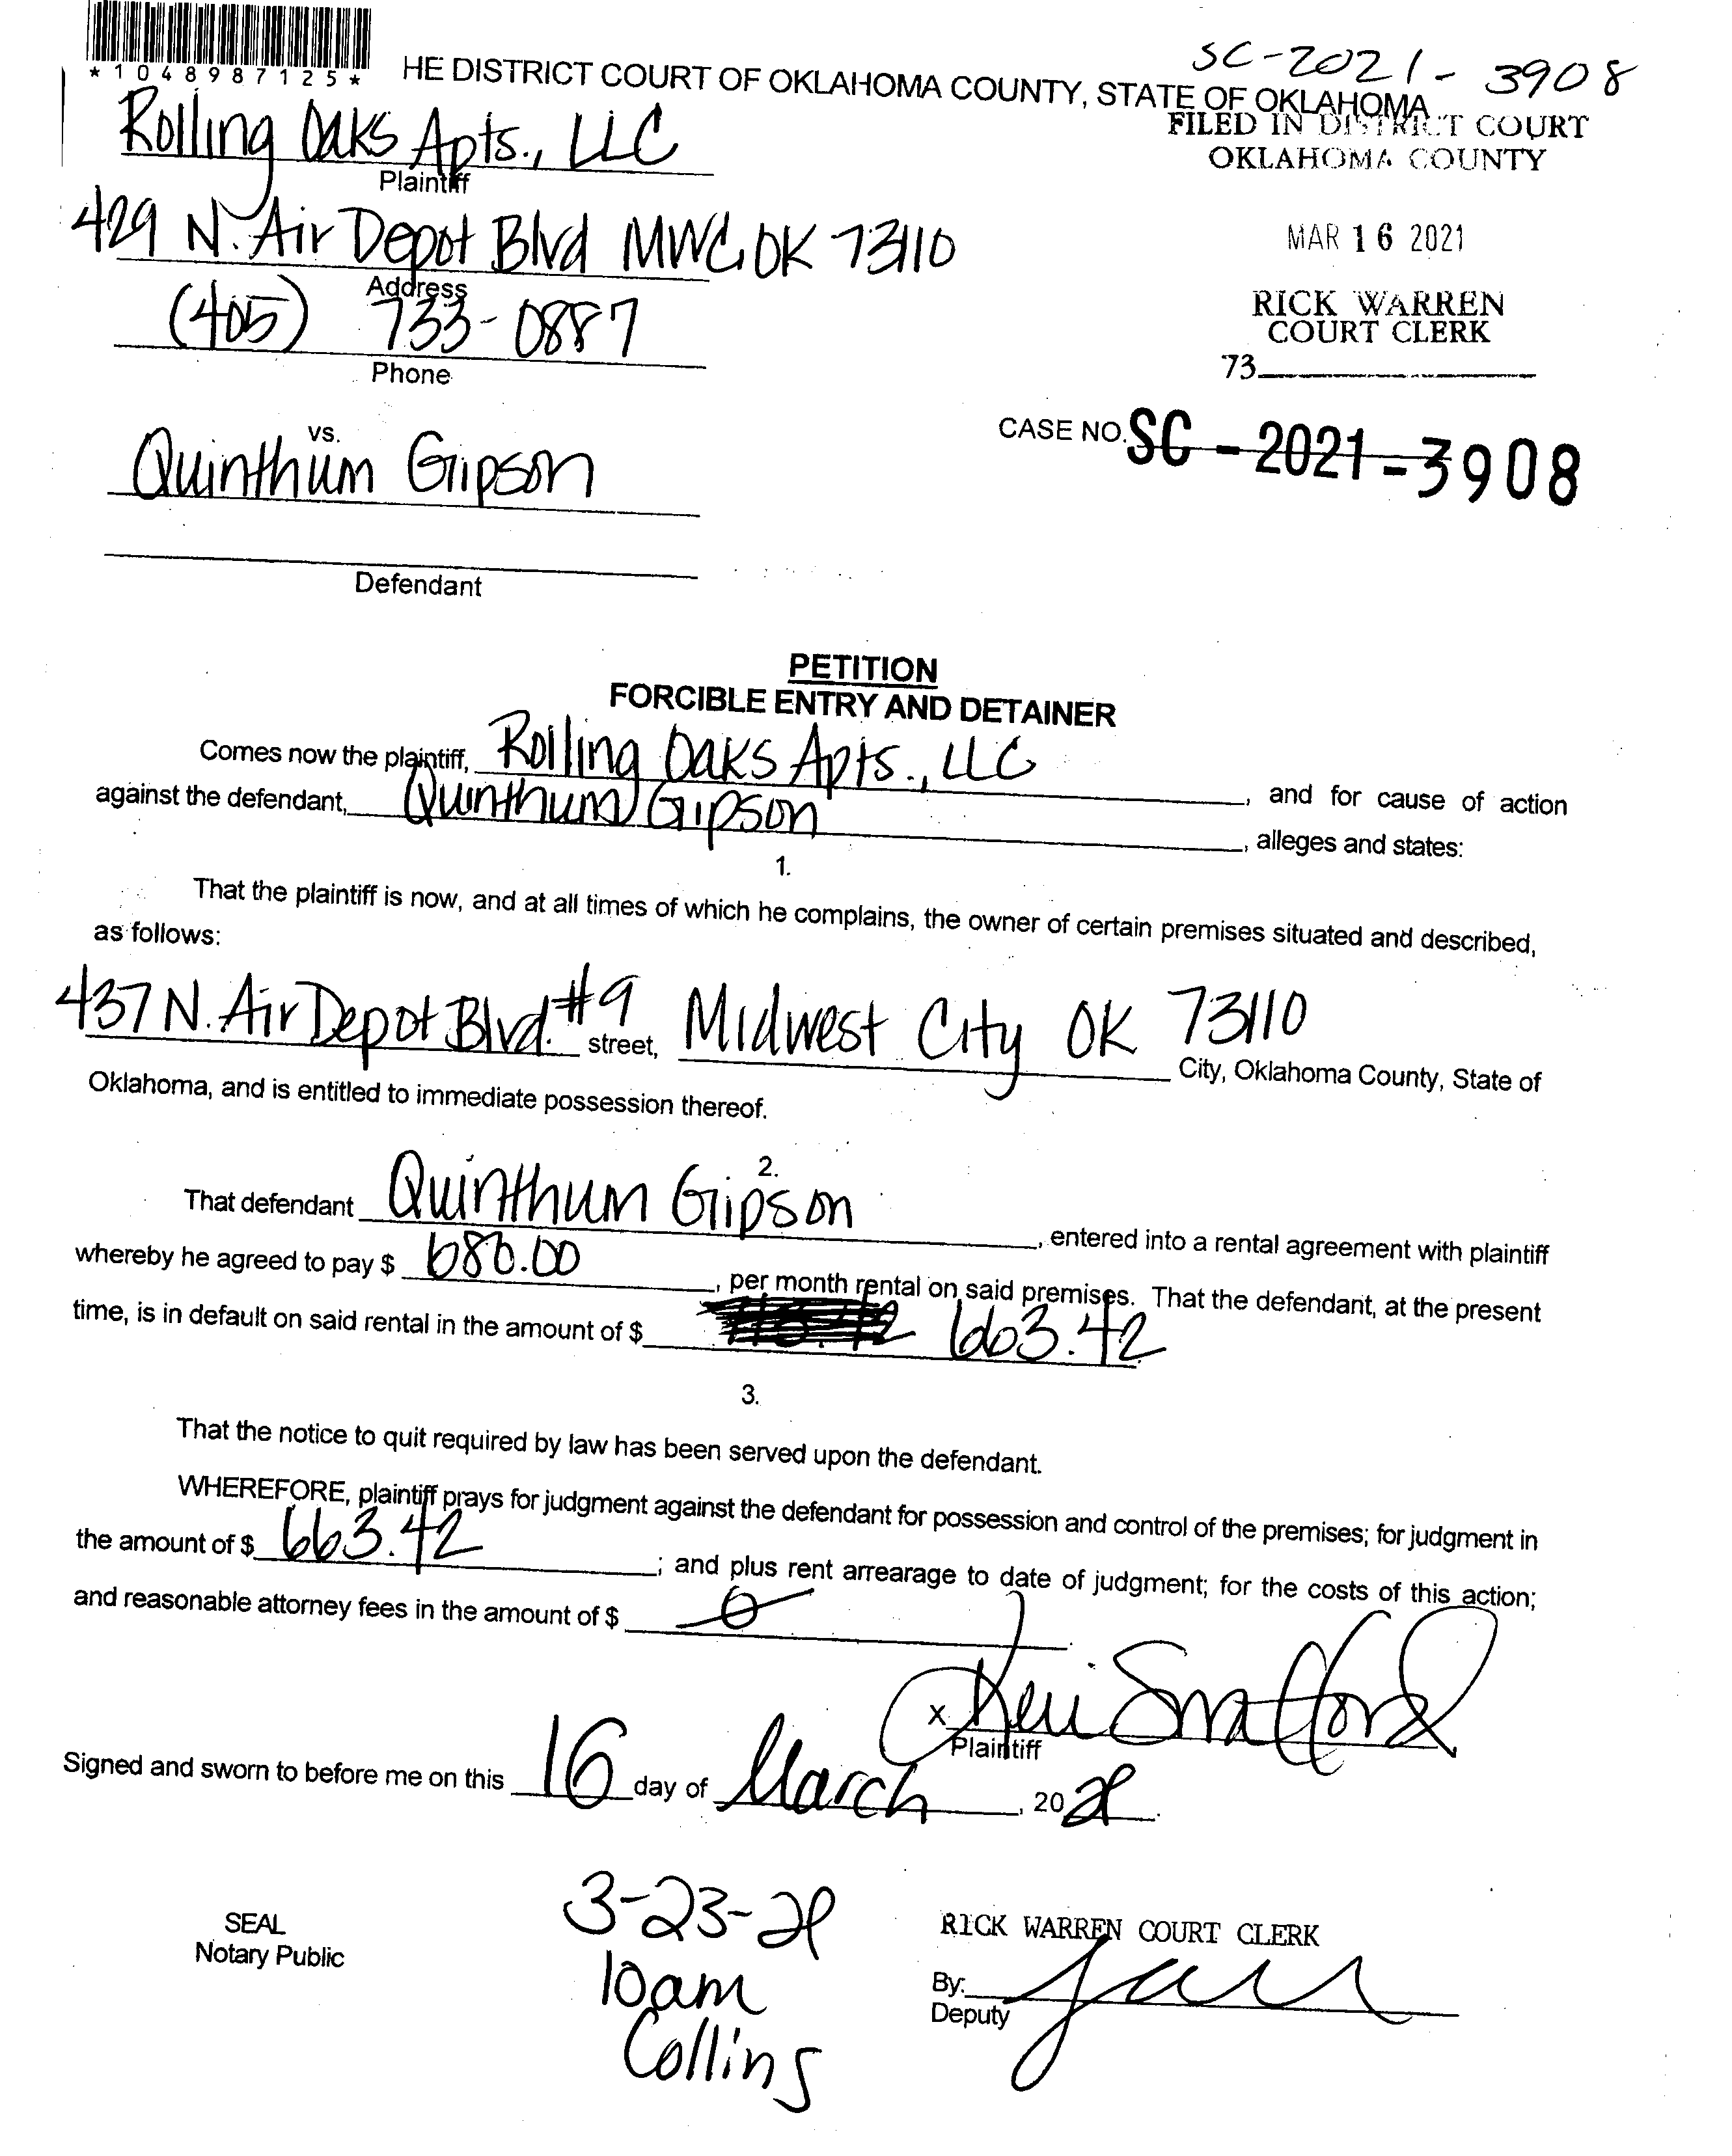 SC-2021-3908
*1048987125*
HE DISTRICT COURT OF OKLAHOMA COUNTY, STATE OF OKLAHOMA
FILED IN DISTRICT COURT
OKLAHOMA COUNTY
Rolling Oaks Apts., LLC
Plaintiff
429 N. Air Depot Blvd MWC, OK 73110
Address
MAR 16 2021
(405) 733-0887
Phone
RICK WARREN
COURT CLERK
73
vs.
CASE NO. SC-2021-3908
Quinthum Gipson
Defendant
PETITION
FORCIBLE ENTRY AND DETAINER
Comes now the plaintiff, Rolling Oaks Apts., LLC
against the defendant, Quinthum Gipson, and for cause of action
, alleges and states:
1.
That the plaintiff is now, and at all times of which he complains, the owner of certain premises situated and described,
as follows:
437 N. Air Depot Blvd. #9 street, Midwest City OK 73110 City, Oklahoma County, State of
Oklahoma, and is entitled to immediate possession thereof.
2.
That defendant Quinthum Gipson, entered into a rental agreement with plaintiff
whereby he agreed to pay $ 680.00, per month rental on said premises. That the defendant, at the present
time, is in default on said rental in the amount of $ 663.42
3.
That the notice to quit required by law has been served upon the defendant.
WHEREFORE, plaintiff prays for judgment against the defendant for possession and control of the premises; for judgment in
the amount of $ 663.42; and plus rent arrearage to date of judgment; for the costs of this action;
and reasonable attorney fees in the amount of $ 0
X
Plaintiff
Signed and sworn to before me on this 16 day of March, 2021.
3-23-21
10am
Collins
SEAL
Notary Public
RICK WARREN COURT CLERK
By:
Deputy